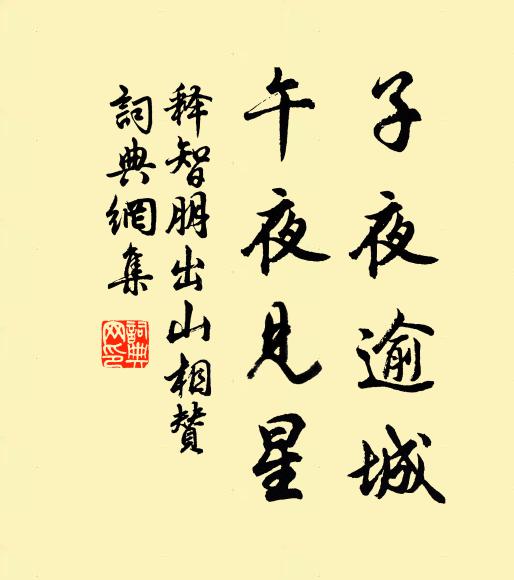 子夜逾城
午夜见星
释智朋出山相赞
詞典網集
詞典网印